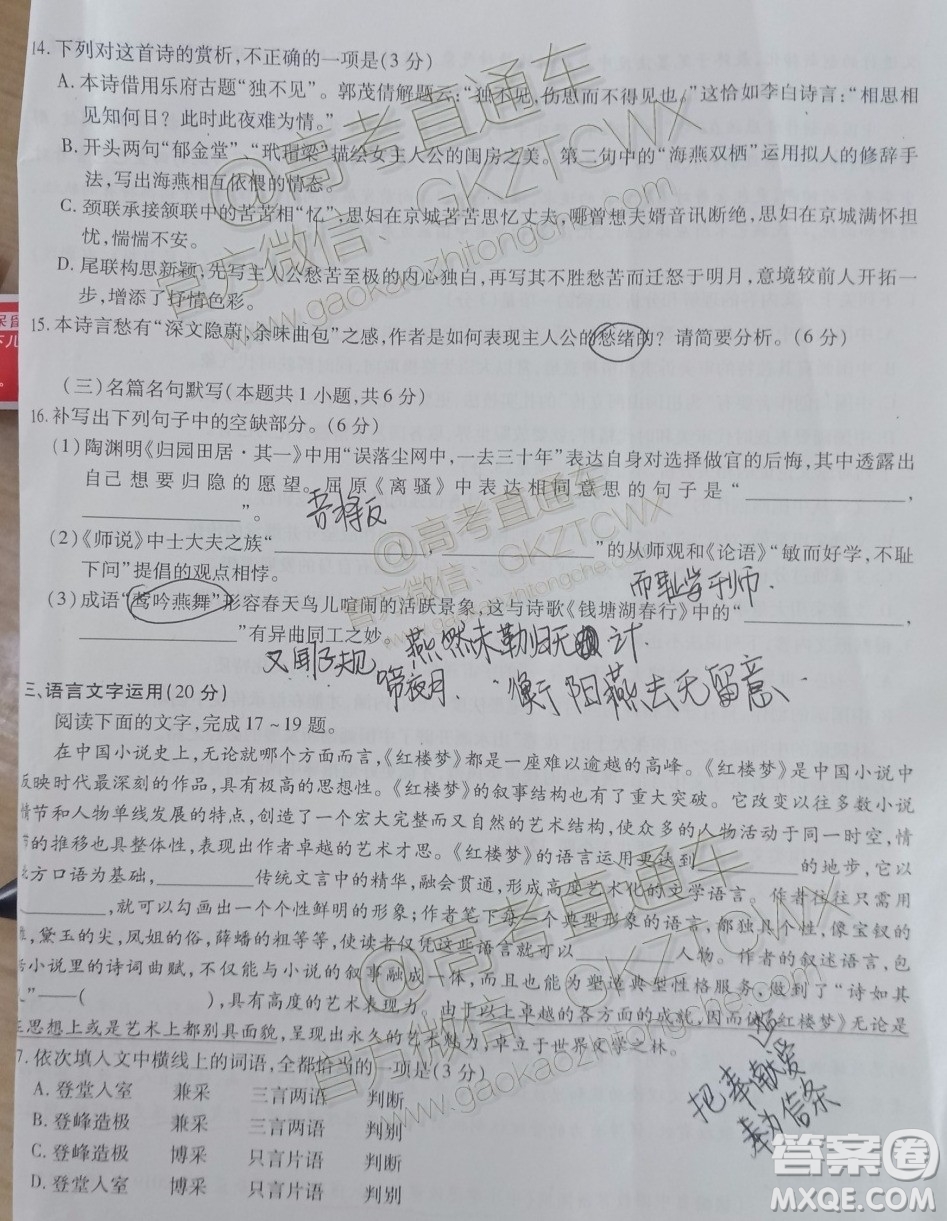 14. 下列对这首诗的赏析,不正确的一项是(3 分)
A. 本诗借用乐府古题“独不见”。郭茂倩解题云:“独不见,伤思而不得见也。”这恰如李白诗言:“相思相
见知何日？此时此夜难为情。”
B. 开头两句“郁金堂”“玳瑁梁”描绘女主人公的闺房之美。第二句中的“海燕双栖”运用拟人的修辞手
法,写出海燕相互依偎的情态。
C. 颈联承接颔联中的苦苦相“忆”,思妇在京城苦苦思忆丈夫,哪曾想夫婿音讯断绝,思妇在京城满怀担
忧,惴惴不安。
D. 尾联构思新颖,先写主人公愁苦至极的内心独白,再写其不胜愁苦而迁怒于明月,意境较前人开阔一
步,增添了抒情色彩。
15. 本诗言愁有“深文隐蔚,余味曲包”之感,作者是如何表现主人公的愁绪的？请简要分析。(6 分)
(三)名篇名句默写(本题共 1 小题,共 6 分)
16. 补写出下列句子中的空缺部分。(6 分)
(1)陶渊明《归园田居·其一》中用“误落尘网中,一去三十年”表达自身对选择做官的后悔,其中透露出
自己想要归隐的愿望。屈原《离骚》中表达相同意思的句子是“__________,
__________”。
(2)《师说》中士大夫之族“__________,__________”的从师观和《论语》“敏而好学,不耻
下问”提倡的观点相悖。
而耻学于师.
(3)成语“莺吟燕舞”形容春天鸟儿喧闹的活跃景象,这与诗歌《钱塘湖春行》中的“__________,
__________”有异曲同工之妙。
燕然未勒归无计
又闻子规
啼夜月.
衡阳燕去无留意.
三、语言文字运用(20 分)
阅读下面的文字,完成 17~19 题。
在中国小说史上,无论就哪个方面而言,《红楼梦》都是一座难以逾越的高峰。《红楼梦》是中国小说中
反映时代最深刻的作品,具有极高的思想性。《红楼梦》的叙事结构也有了重大突破。它改变以往多数小说
情节和人物单线发展的特点,创造了一个宏大完整而又自然的艺术结构,使众多的人物活动于同一时空,情
节的推移也具整体性,表现出作者卓越的艺术才思。《红楼梦》的语言运用更达到__________的地步,它以
北方口语为基础,__________传统文言中的精华,融会贯通,形成高度艺术化的文学语言。作者往往只需用
__________,就可以勾画出一个个性鲜明的形象;作者笔下每一个典型形象的语言,都独具个性,像宝钗的
,黛玉的尖,凤姐的俗,薛蟠的粗等等,使读者仅凭这些语言就可以__________人物。作者的叙述语言,
小说里的诗词曲赋,不仅能与小说的叙事融成一体,而且也能为塑造典型性格服务,做到了“诗如其
人”——( ),具有高度的艺术表现力。由于以上卓越的各方面的成就,因而使《红楼梦》无论是
在思想上或是艺术上都别具面貌,呈现出永久的艺术魅力,卓立于世界文学之林。
把奉献爱
奉为信条
17. 依次填入文中横线上的词语,全都恰当的一项是(3 分)
A. 登堂入室 兼采 三言两语 判断
B. 登峰造极 兼采 三言两语 判别
C. 登峰造极 博采 只言片语 判断
D. 登堂入室 博采 只言片语 判别
@高考直通车
官方微信:GKZTCWX
www.gaokaozhitongche.com
答案圈
MXQE.COM